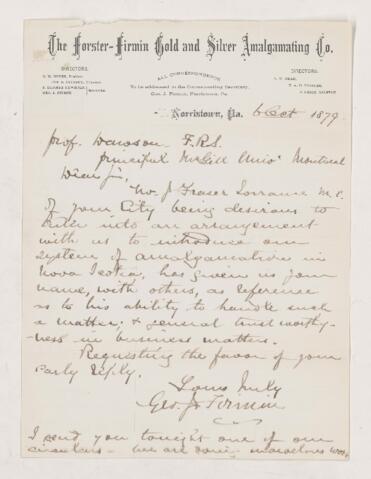 The Forster-Firmin Gold and Silver Amalgamating Co.
DIRECTORS:
DIRECTORS:
ALL CORRESPONDENCE
To be addressed to the Corresponding Secretary,
Geo. J. Firmin, Norristown, Pa.
Norristown, Pa. 6 Oct 1879
Prof. Dawson F.R.S.
principal McGill Univ. Montreal
Dear Sir,
Mr. J Fraser Lorraine M.E.
of your City being desirous to
enter into an arrangement
with us to introduce our
system of amalgamation in
Nova Scotia, has given us your
name, with others, as reference
as to his ability to handle such
a matter, & general trustworthy-
ness in business matters.
Requesting the favor of your
early reply.
Yours truly
Geo. J. Firmin
I send you tonight one of our
circulars - We are doing marvelous work